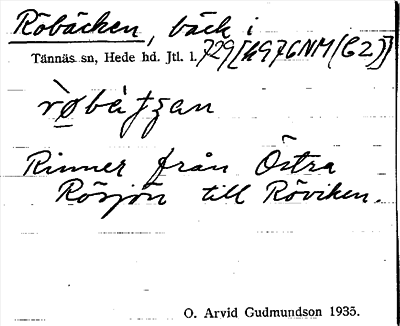 Röbäcken, bäck i
Tännäs sn, Hede hd. Jtl. l. 729 [h976NM(C2)]
Rinner från Östra
Rösjön till Röviken.
O. Arvid Gudmundson 1935.